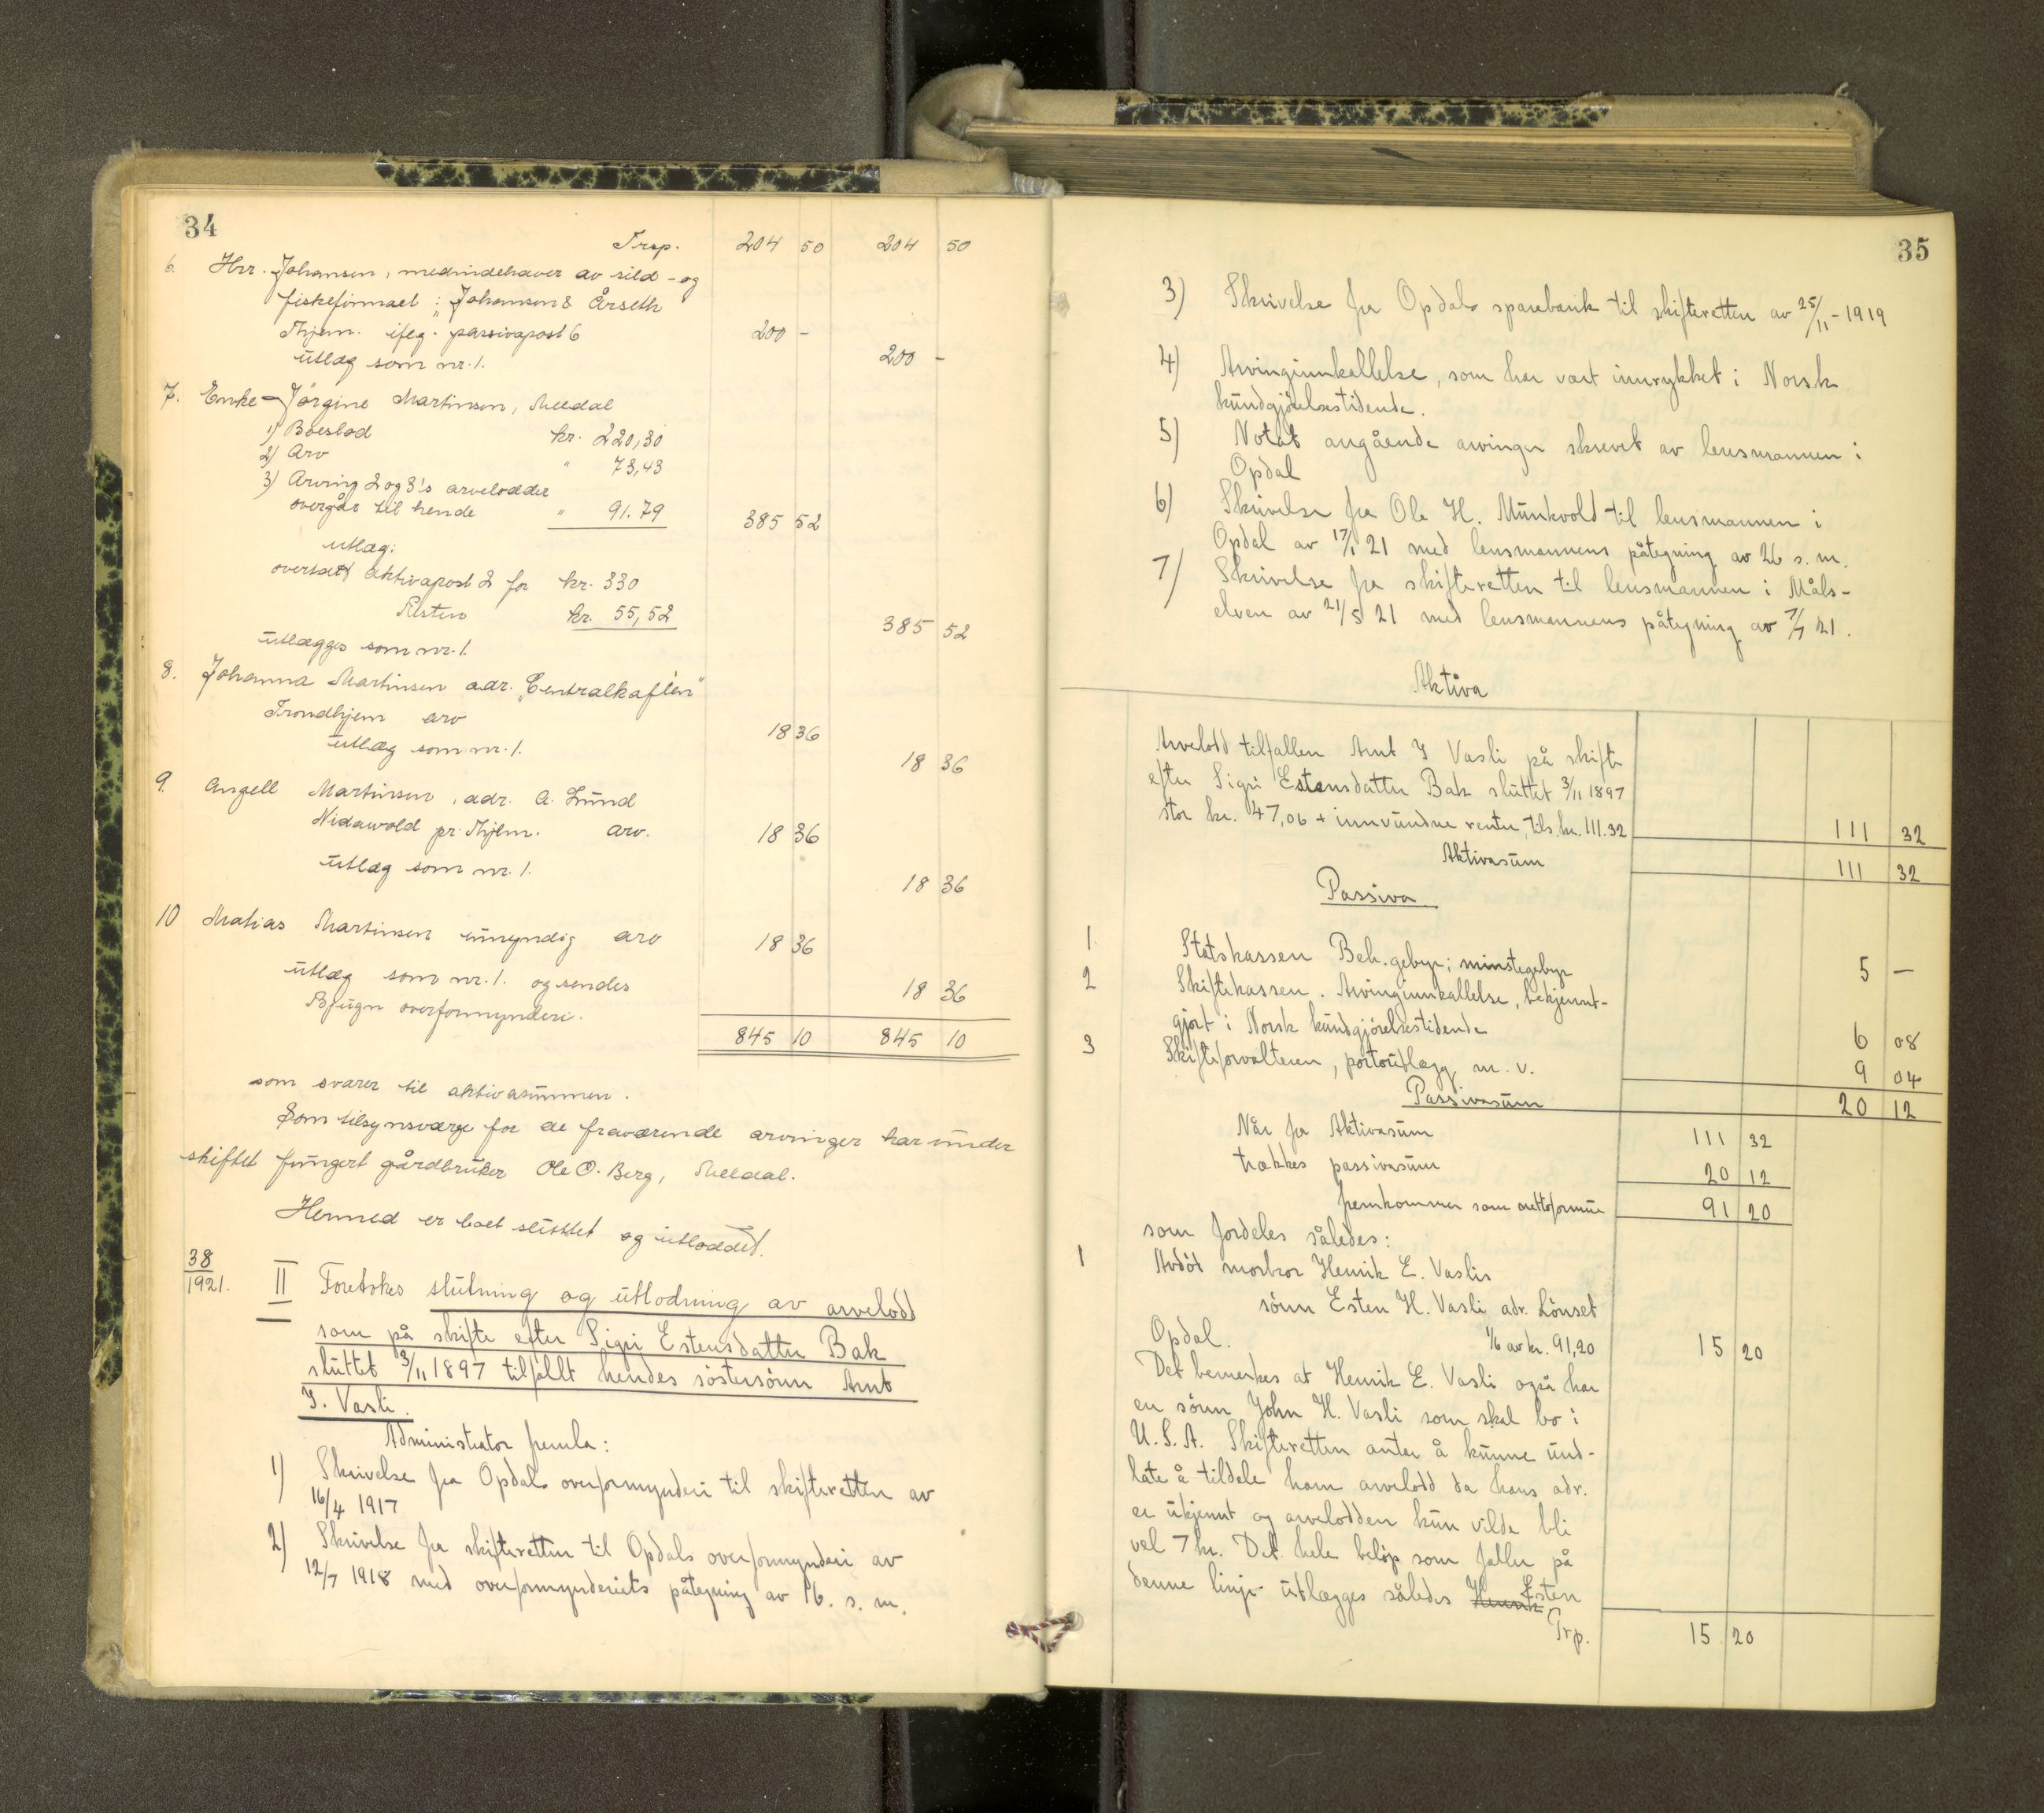 34
Trsp. 204 50 204 50
6. Hrr. Johansen, medindehaver av sild- og
fiskefirmaet: "Johansen & Årseth
Thjem. iflg. passivapost 6 200 -
utlæg som nr. 1. 200 -
7. Enke Jörgine Martinsen, Meldal
1) Boeslod kr. 220,30
2) Arv " 73,43
3) Arving 2 og 3's arvelodder
overgår til hende " 91.79 385 52
utlæg:
overtatt aktivapost 2 for kr. 330
Resten kr. 55,52 385 52
utlægges som nr. 1.
8. Johanna Martinsen adr. "Centralkafeen"
Trondhjem arv 18 36
utlæg som nr. 1. 18 36
9. Angell Martinsen, adr. A. Lund
Nidarvold pr. Thjem. arv. 18 36
utlæg som nr. 1. 18 36
10 Matias Martinsen umyndig arv 18 36
utlæg som nr. 1. og sendes 18 36
Bjugn overformynderi.
845 10 845 10
som svarer til aktivasummen.
Som tilsynsværge for de fraværende arvinger har under
skiftet fungert gårdbruker Ole O. Berg, Meldal.
Hermed er boet sluttet og utloddet.
38
1921. II Foretokes slutning og utlodning av arvelodd
som på skifte efter Sigri Estensdatter Bak
sluttet 3/11 1897 tilfallt hendes söstersönn Arnt
I. Vasli.
Administrator fremla:
1) Skrivelse fra Opdals overformynderi til skifteretten av
16/4 1917
2) Skrivelse fra skifteretten til Opdals overformynderi av
12/7 1918 med overformynderiets påtegning av 16. s. m.
35
3) Skrivelse fra Opdals sparebank til skifteretten av 25/11 - 1919
4) Arvinginnkallelse, som har vært innrykket i Norsk
kundgjörelsestidende.
5) Notat angående arvinger skrevet av lensmannen i
Opdal
6) Skrivelse fra Ole H. Munkvold til lensmannen i
Opdal av 17/1 21 med lensmannens påtegning av 26 s. m.
7) Skrivelse fra skifteretten til lensmannen i Måls-
elven av 21/5 21 med lensmannens påtegning av 7/7 21.
Aktiva
Arvelodd tilfallen Arnt I Vasli på skifte
efter Sigri Estensdatter Bak sluttet 3/11 1897
stor kr. 47,06 + innvundne renter, tils. kr. 111.32 111 32
Aktivasum 111 32
Passiva
1. Statskassen Beh. gebyr; minstegebyr 5 —
2 Skiftekassen. Arvinginnkallelse, bekjennt-
gjort i Norsk kundgjörelsestidende 6 08
3 Skifteforvalteren, portoutlegg m. v. 9 04
Passivasum 20 12
Når fra Aktivasum 111 32
trækkes passivasum 20 12
fremkommer som nettoformue 91 20
som fordeles således:
1 Avdöt morbror Henrik E. Vaslis
sönn Esten H. Vasli adr. Lönset
Opdal. 1/6 av kr. 91,20 15 20
Det bemerkes at Henrik E. Vasli også har
en sönn John H. Vasli som skal bo i
U. S. A. Skifteretten antar å kunne und-
late å tildele ham arvelodd da hans adr.
er ukjennt og arvelodden kun vilde bli
vel 7 kr. Det hele belöp som faller på
denne linje utlægges således Henrik Esten
Trp. 15 20